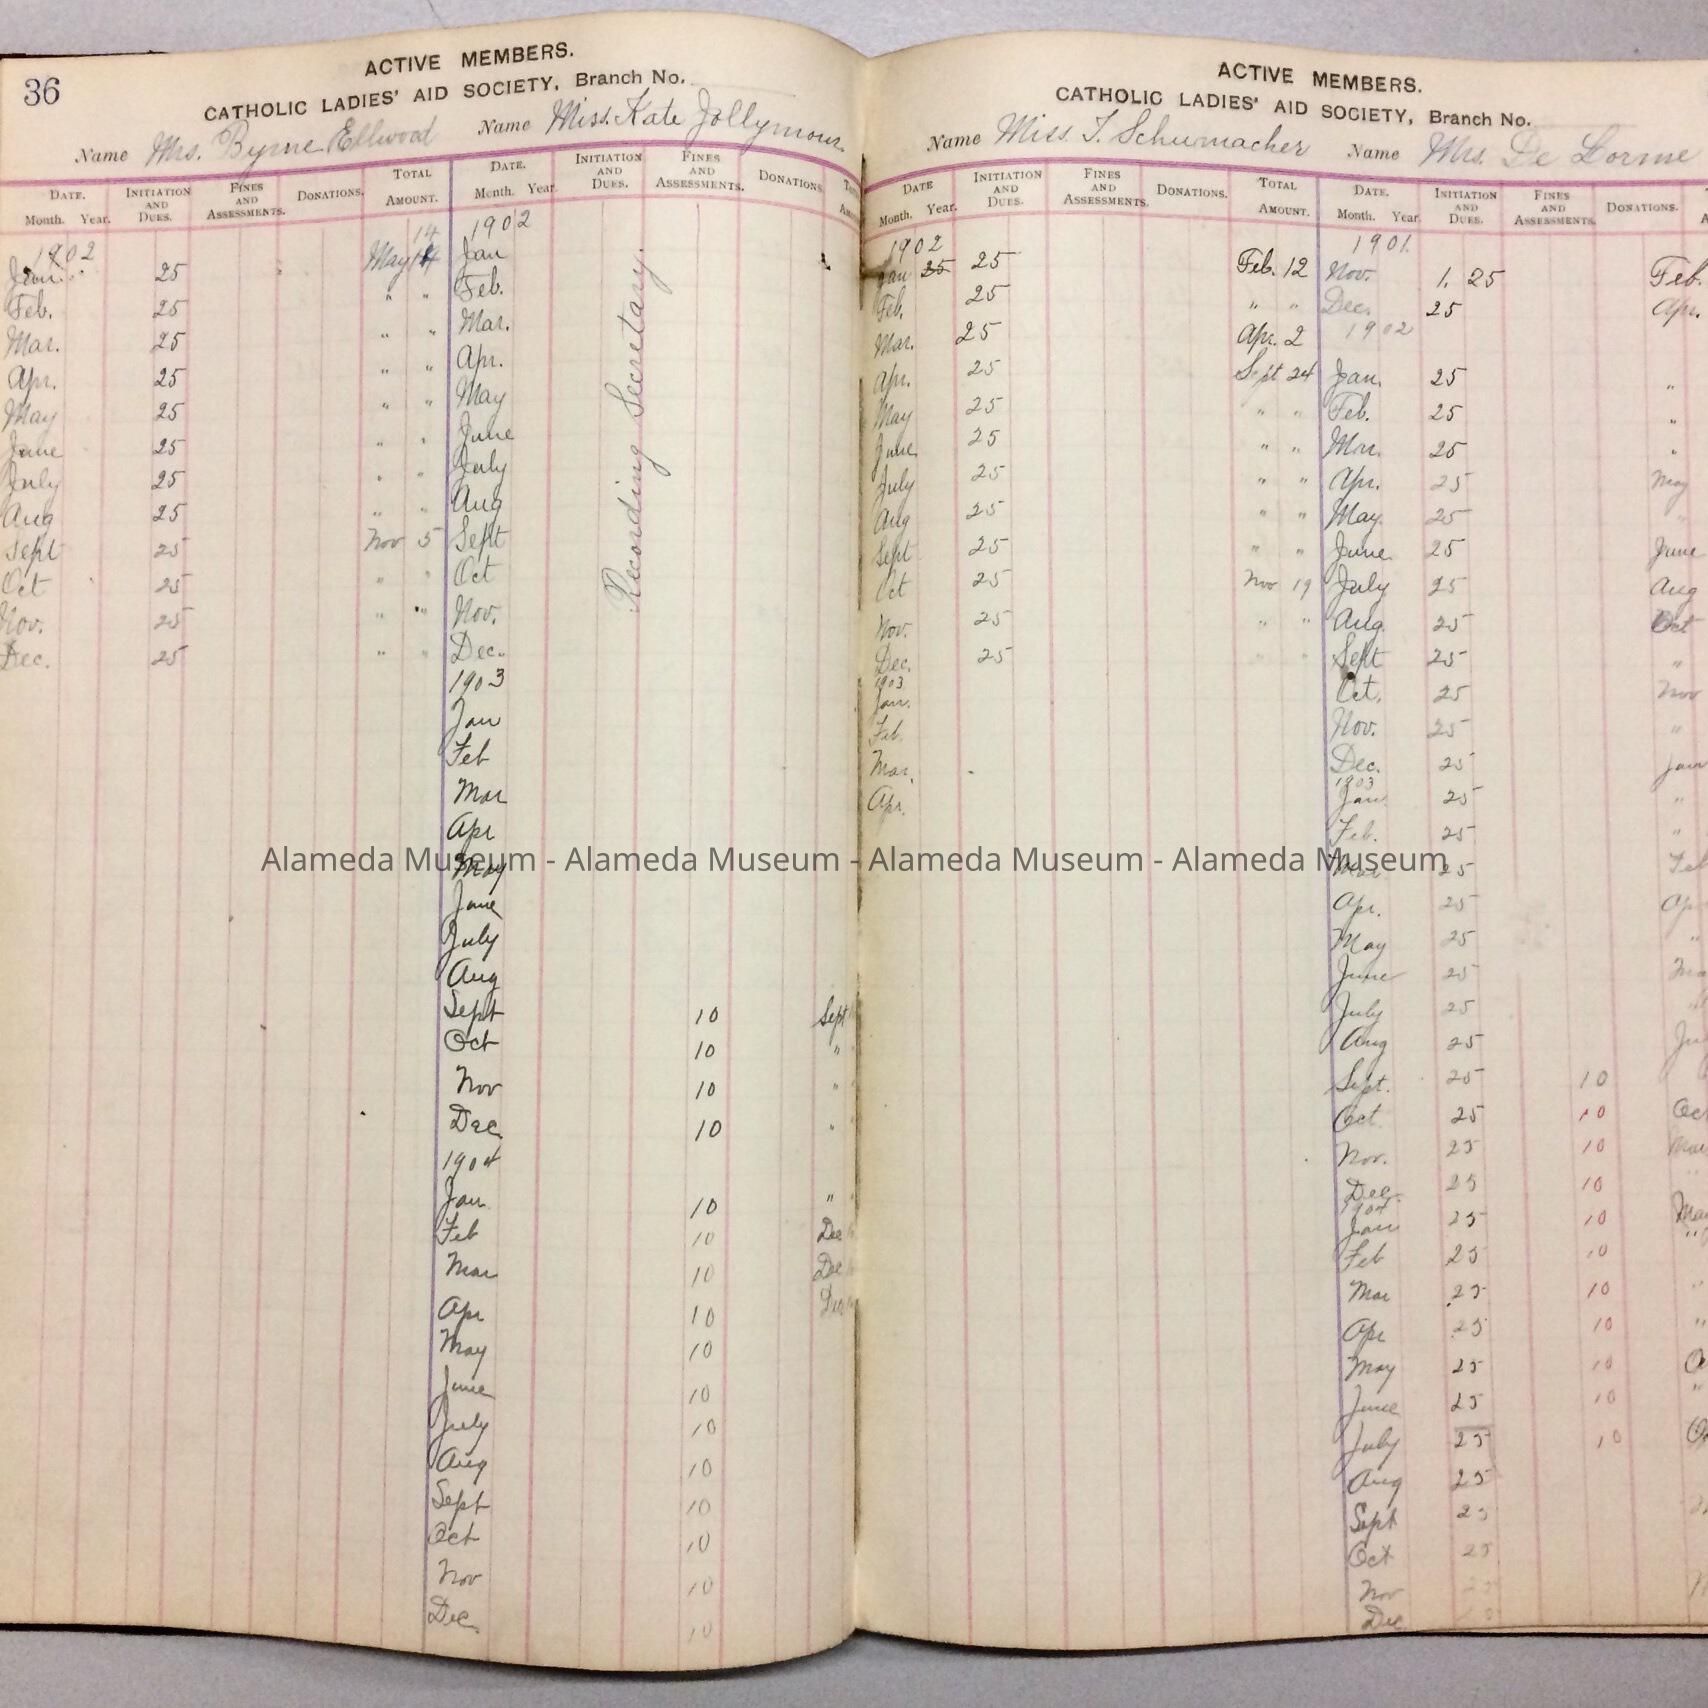 36
ACTIVE MEMBERS.
CATHOLIC LADIES' AID SOCIETY, Branch No.
Name Mrs. Byrne Ellwood
DATE. INITIATION AND DUES. FINES AND ASSESSMENTS. DONATIONS. TOTAL AMOUNT.
Month. Year.
1902 14
Jan. 25 May 14
Feb. 25 " "
Mar. 25 " "
Apr. 25 " "
May 25 " "
June 25 " "
July 25 " "
Aug 25 " "
Sept 25 Nov 5
Oct 25 " "
Nov. 25 " "
Dec. 25 " "
Name Miss. Kate Jollymour
DATE. INITIATION AND DUES. FINES AND ASSESSMENTS. DONATIONS.
Month. Year.
Recording Secretary.
1902
Jan
Feb.
Mar.
Apr.
May
June
July
Aug
Sept
Oct
Nov.
Dec.
1903
Jan
Feb
Mar
Apr
May
June
July
Aug
Sept 10 Sept
Oct 10 "
Nov 10 "
Dec. 10 "
1904
Jan 10 "
Feb 10 Dec
Mar 10 Dec
Apr 10 Dec
May 10
June 10
July 10
Aug 10
Sept 10
Oct 10
Nov 10
Dec. 10
ACTIVE MEMBERS.
CATHOLIC LADIES' AID SOCIETY, Branch No.
Name Miss. T. Schumacher
DATE INITIATION AND DUES. FINES AND ASSESSMENTS. DONATIONS. TOTAL AMOUNT.
Month. Year.
1902
Jan 25 25 Feb. 12
Feb. 25 " "
Mar. 25 Apr. 2
Apr. 25 Sept 24
May 25 " "
June 25 " "
July 25 " "
Aug 25 " "
Sept 25 " "
Oct 25 Nov 19
Nov. 25 " "
Dec. 25 " "
1903
Jan.
Feb.
Mar.
Apr.
Name Mrs. De Lorme
DATE. INITIATION AND DUES. FINES AND ASSESSMENTS. DONATIONS.
Month. Year.
1901.
Nov. 1. 25 Feb.
Dec. 25 Apr.
1902
Jan. 25 "
Feb. 25 "
Mar. 25 "
Apr. 25 May
May. 25 "
June 25 June
July 25 Aug
Aug. 25 Oct
Sept 25 "
Oct. 25 Nov
Nov. 25 "
Dec. 25 Jan
1903
Jan 25 "
Feb. 25 "
Mar 25 Feb
Apr. 25 Ap
May 25 "
June 25 Ma
July 25
Aug 25 Ju
Sept. 25 10
Oct 25 10 Oct
Nov. 25 10 Mar
Dec. 25 10
1904
Jan 25 10 Mar
Feb 25 10 "
Mar 25 10 "
Apr 25 10 "
May 25 10
June 25 10 "
July 25 10
Aug 25
Sept 25
Oct 25
Nov 25
Dec
Alameda Museum - Alameda Museum - Alameda Museum - Alameda Museum